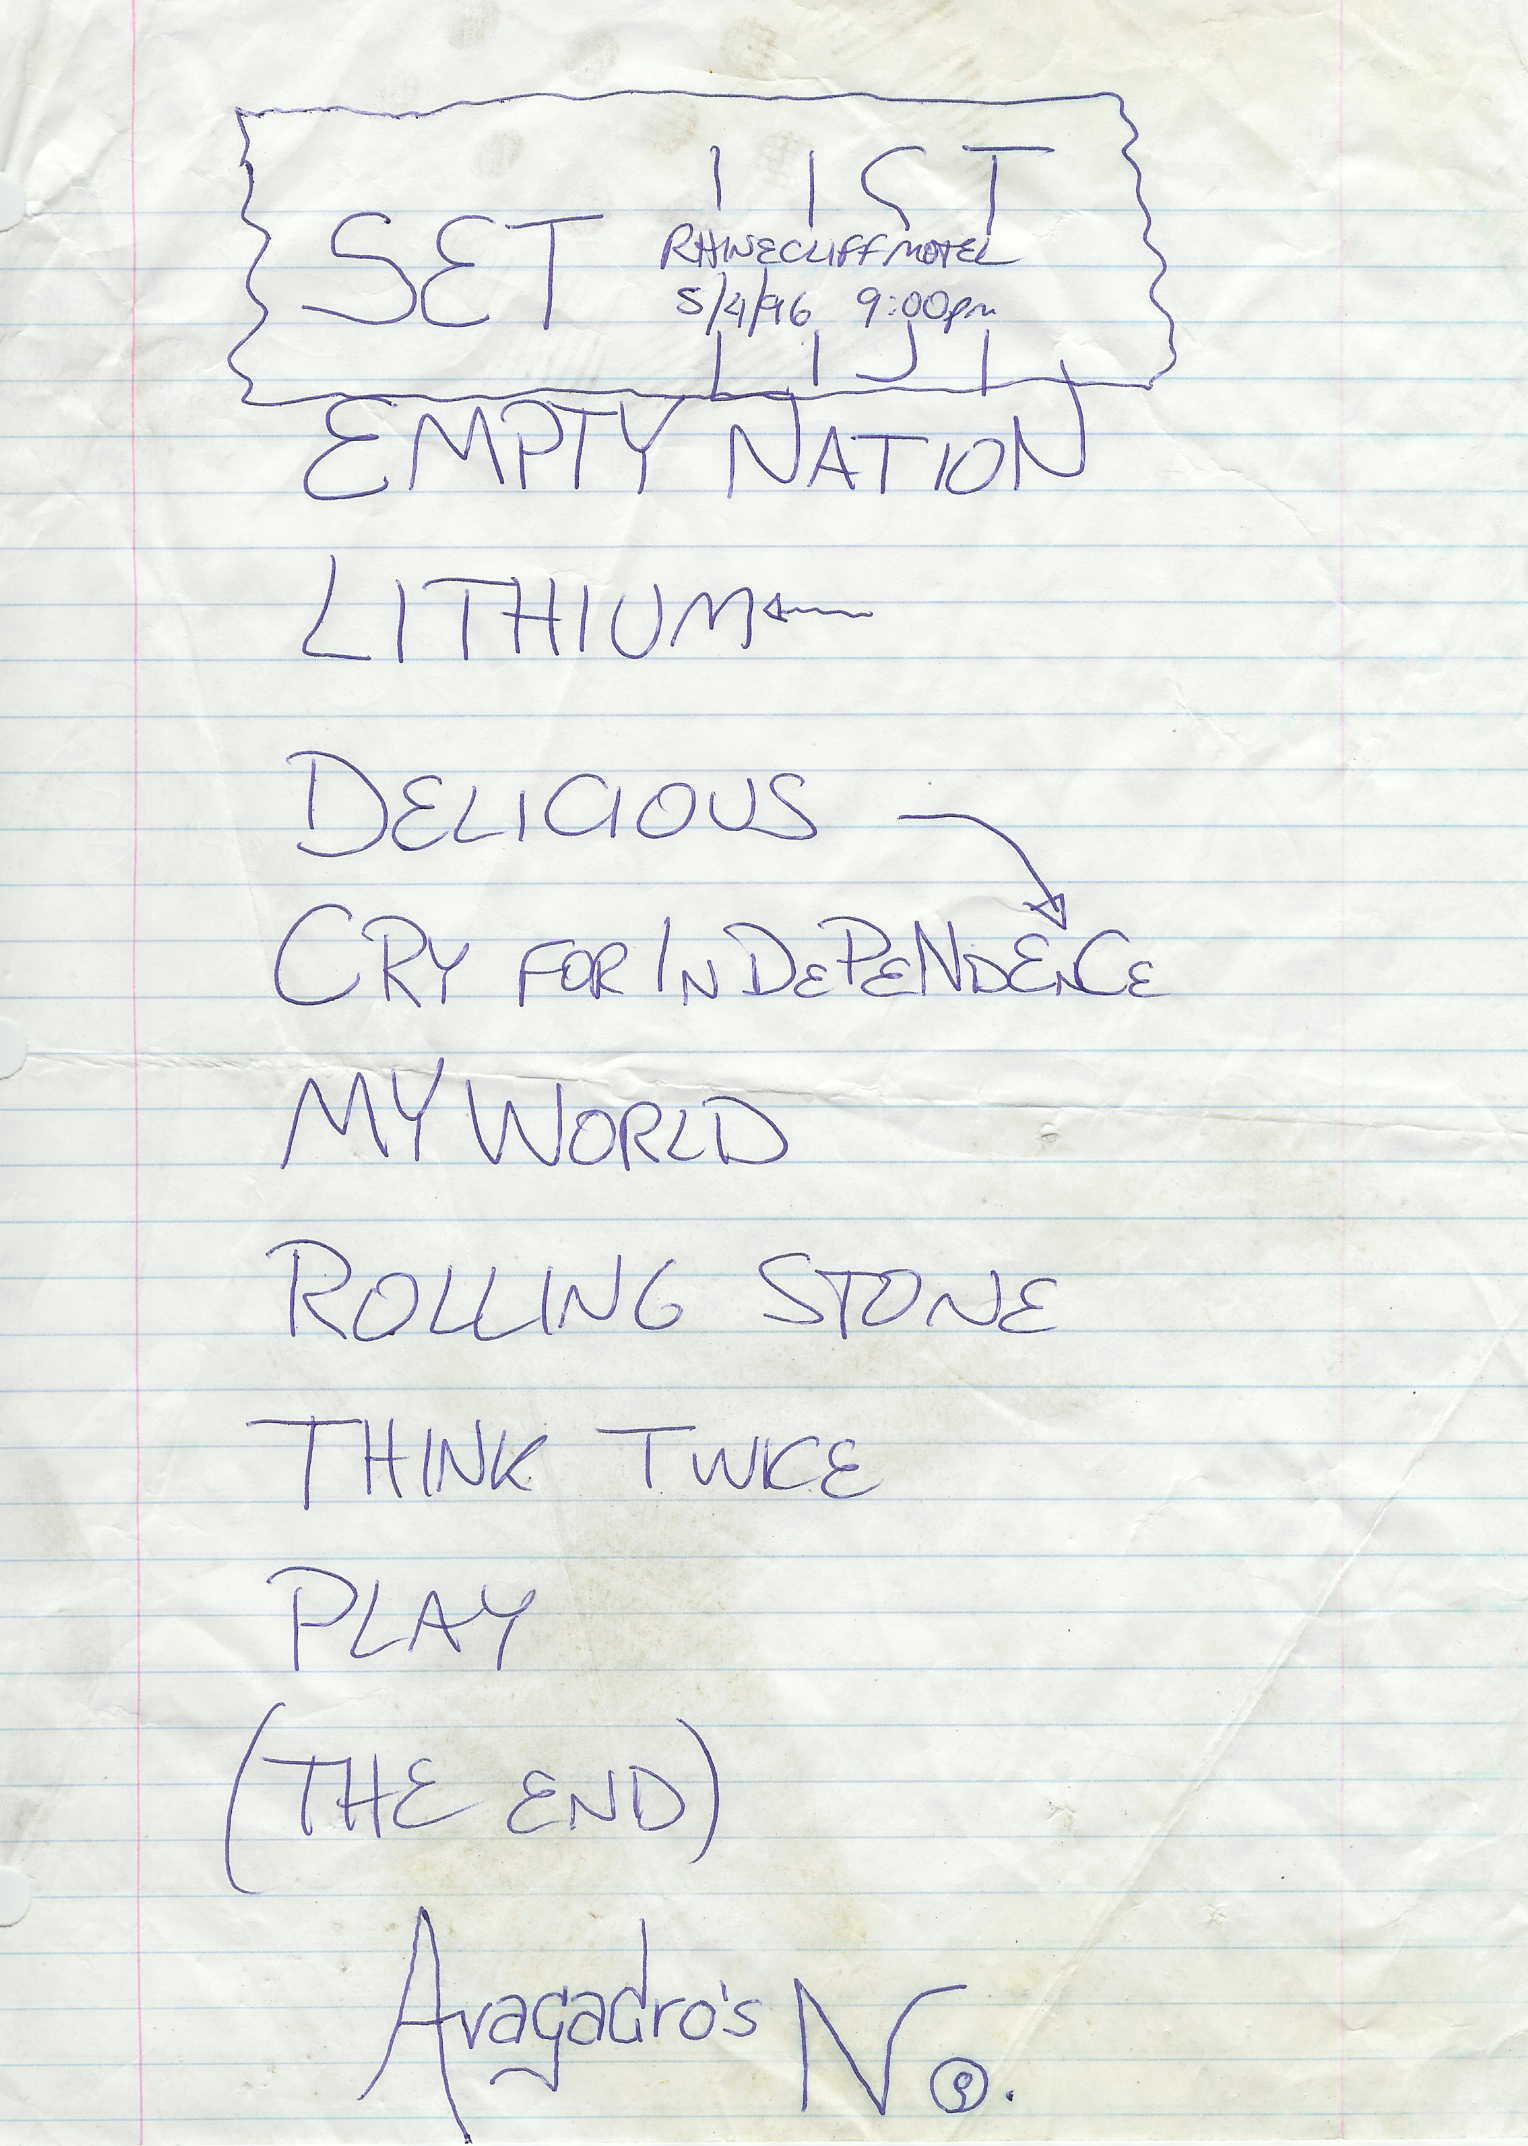 SET LIST
RHINECLIFF MOTEL
5/4/96 9:00pm
EMPTY NATION
LITHIUM
DELICIOUS
CRY FOR INDEPENDENCE
MY WORLD
ROLLING STONE
THINK TWICE
PLAY
(THE END)
Avagadro's No.